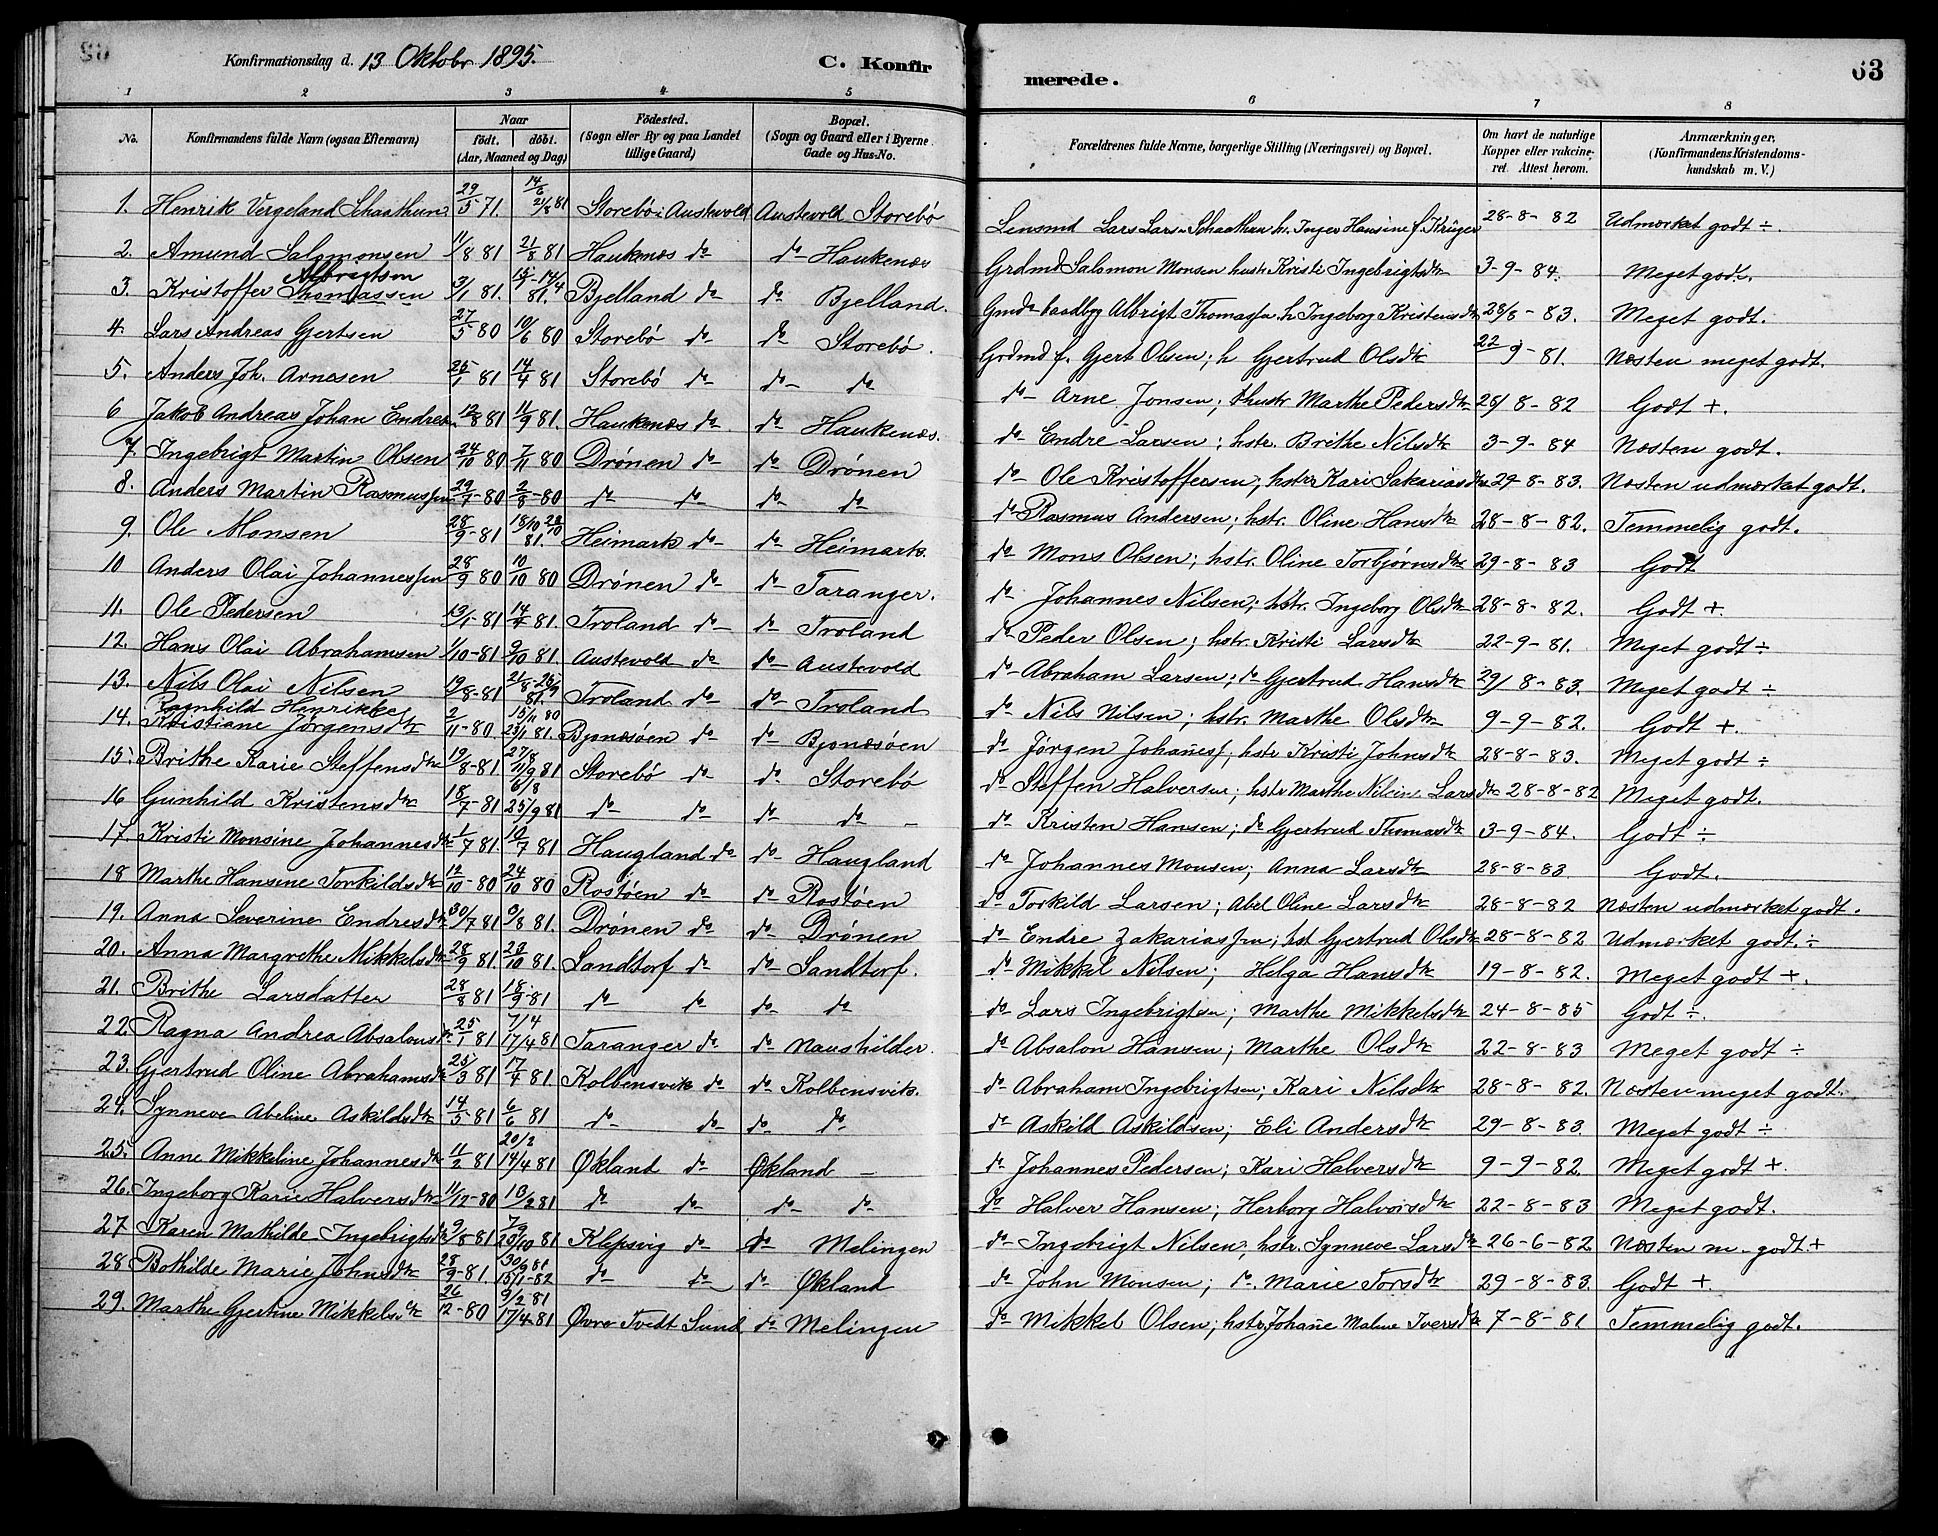 Konfirmationsdag d. 13 Oktobr 1895.
C. Konfir
merede.
63
1 2 3 4 5 6 7 8
No. Konfirmandens fulde Navn (ogsaa Efternavn) Naar födt. döbt. (Aar, Maaned og Dag) Födested. (Sogn eller By og paa Landet tillige Gaard) Bopæl. (Sogn og Gaard eller i Byerne Gade og Hus-No. Forældrenes fulde Navne, borgerlige Stilling (Næringsvei) og Bopæl. Om havt de naturlige Kopper eller vakcineret. Attest herom. Anmærkninger, (Konfirmandens Kristendomskundskab m. V.)
1. Henrik Vergeland Schaathun 29/5 71. 14/6 21/8 81 Storebö i Austevold Austevold Storebö Lensmd Lars Lars. Schaathun h. Inger Hansine f. Krüger 28-8-82 Udmærket godt ÷.
2. Amund Salomonsen 11/8 81 21/8 81 Haukenæs do do Haukenæs Grdmd Salomon Monsen hustr Kristi Ingebrigtsdtr 3-9-84. Meget godt.
3. Kristoffer Thomassen Albrigtsen 3/1 81. 81. Bjelland do do Bjelland. Gmd Albrigt Thomassen h Ingeborg Kristensdtr 28/8-83. Meget godt.
4. Lars Andreas Gjertsen 27/5 80 10/6 80 Storebö do do Storebö. Grdmd f. Gjert Olsen; h Gjertrud Olsdtr 22-9-81. Næsten meget godt.
5. Anders Joh. Arnesen 25/1 81 14/4 81 Storebö do do do do Arne Jonsen; hustr Marthe Pedersdtr 28/8-82 Godt +.
6 Jakob Andreas Johan Endres. 12/8 81 11/9 81. Haukenæs do do Haukenæs. do Endre Larsen; hstr. Brithe Nilsdtr 3-9-84 Næsten godt.
7. Ingebrigt Martin Olsen 24/10 80 7/11 80 Drönen do do Drönen do Ole Kristoffersen; hstr Kari Sakariasdtr 29-8-83. Næsten udmærket godt.
8. Anders Martin Rasmussen 29/7-80 2/8-80 do do do do do Rasmus Andersen; hstr. Oline Hansdtr 28-8-82. Temmelig godt.
9. Ole Monsen 28/9-81 18/10 81. Heimark do do Heimark do Mons Olsen; hstr. Oline Torbjörnsdtr 29-8-83 Godt
10 Anders Olai Johannessen 28/9 80 10/10 80 Drönen do do Taranger. do Johannes Nilsen; hstr. Ingeborg Olsdtr 28-8-82. Godt +
11. Ole Pedersen 13/1-81 14/4 81. Troland do do Troland do Peder Olsen; hstr. Kristi Larsdtr 22-9-81. Meget godt ÷
12. Hans Olai Abrahamsen 1/10-81 9/10 81. Austevold do do Austevold do Abraham Larsen; do Gjertrud Hansdtr 29/8-83. Meget godt ÷
13. Nils Olai Nilsen 19/8-81 21/8-81. Troland do do Troland do Nils Nilsen; hstr. Marthe Olsdtr 9-9-82. Godt +.
14. Ragnhild Henrikke Kristiane Jörgensdtr 2/11-80. 15/11 80 23/1 81 Bjonæsöen do do Bjonæsöen do Jörgen Johanesf; hstr Kristi Johnsdtr 28-8-83. Meget godt ÷
15. Brithe Karie Steffensdtr 19/8-81 27/8 11/9 81 Storebö do do Storebö do Steffen Halversen; hstr Marthe Nilsine Larsdtr 28-8-82 Meget godt.
16 Gunhild Kristensdtr 18/7-81 6/8 25/9 81 do do do do do Kristen Hansen; do Gjertrud Thomasdtr 3-9-84. Godt ÷
17. Kristi Monsine Johannesdtr 1/7 81. 10/7 81 Haugland do do Haugland do Johannes Monsen; Anna Larsdtr 28-8-83 Godt.
18 Marthe Hansine Torkildsdtr 12/10-80 24/10 80 Rostöen do do Rostöen do Torkild Larsen; Abel Oline Larsdtr 28-8-82 Næsten udmærket godt.
19. Anna Severine Endresdtr 30/7 81 9/8 81. Drönen do do Drönen do Endre Zakariassen; hst Gjertrud Olsdtr 28-8-82 Udmærket godt ÷
20. Anna Margrethe Mikkelsdtr 28/9 81. 23/10 81. Sandtorf do do Sandtorf. do Mikkel Nilsen; Helga Hansdtr 19-8-82. Meget godt +.
21. Brithe Larsdatter 28/8 81 18/9-81 do do do do do Lars Ingebrigtsen; Marthe Mikkelsdtr 24-8-85 Godt ÷.
22. Ragna Andrea Absalonsdtr 25/1 81 7/4 17/4 81 Taranger do do Naushilder. do Absalon Hansen; Marthe Olsdtr 22-8-83 Meget godt ÷
23. Gjertrud Oline Abrahamsdtr 25/3 81 17/4 81 Kolbensvik do do Kolbensvik. do Abraham Ingebrigtsen; Kari Nilsdtr 28-8-82. Næsten meget godt.
24. Synneve Abeline Askildsdtr 14/5 81 6/6 81 do do do do do Askild Askildsen; Eli Andersdtr 29-8-83. Meget godt ÷
25. Anne Mikkeline Johannesdtr 11/2 81 20/2 14/4 81 Økland do Økland do Johannes Pedersen; Kari Halversdtr 9-9-82. Meget godt +.
26. Ingeborg Karie Halversdtr 11/12-80 10/2 81 do do do do do Halver Hansen; Herborg Halvorsdtr 22-8-83 Meget godt.
27 Karen Mathilde Ingebrigtsdtr 9/8-81 7/9 23/10 81 Klepsvig do do Melingen do Ingebrigt Nilsen; hstr. Synneve Larsdtr 26-6-82 Næsten m. godt +
28 Bothilde Marie Johnsdtr 28/9-81 30/9 81 15/1-82 do do do Økland do John Monsen; do Marie Torsdtr 29-8-83. Godt +.
29. Marthe Gjertine Mikkelsdtr 26/12-80 9/2 81 17/4-81 Øvre Tvedt Sund do Melingen do Mikkel Olsen; hstr Johane Maline Iversdtr 7-8-81 Temmelig godt.